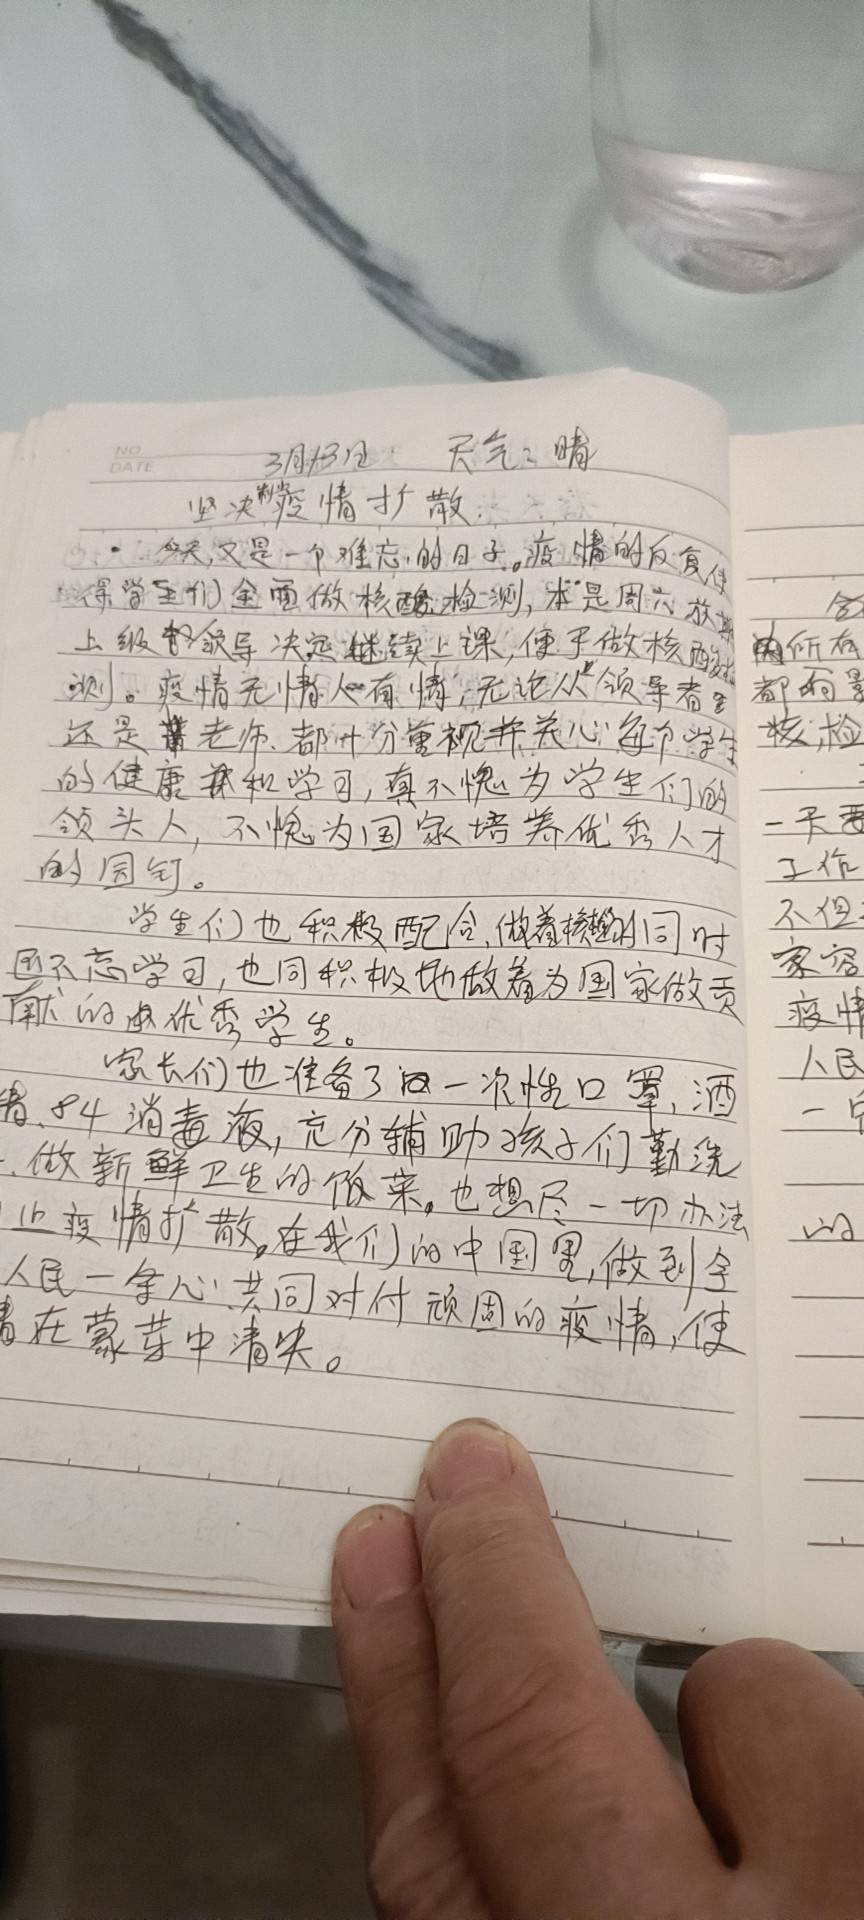 NO.
DATE
3月13日 天气:晴
坚决制止疫情扩散
今天,又是一个难忘的日子。疫情的反复使
得学生们全面做核酸检测,本是周六放
上级领导决定继续上课,便于做核酸检
测。疫情无情人有情,无论从领导者
还是老师、都十分重视并关心每个学生
的健康和学习,真不愧为学生们的
领头人,不愧为国家培养优秀人才
的园钉。
学生们也积极配合,做着核酸的同时
还不忘学习,也同积极地做着为国家做贡
献的优秀学生。
家长们也准备了一次性口罩,酒
精、84消毒液,充分辅助孩子们勤洗
、做新鲜卫生的饭菜。也想尽一切办法
止疫情扩散。在我们的中国里,做到全
人民一条心共同对付顽固的疫情,使
情在蒙芽中清失。
所有
都
核,检
一天要
工作
不但
家容
疫情
人民
一
的